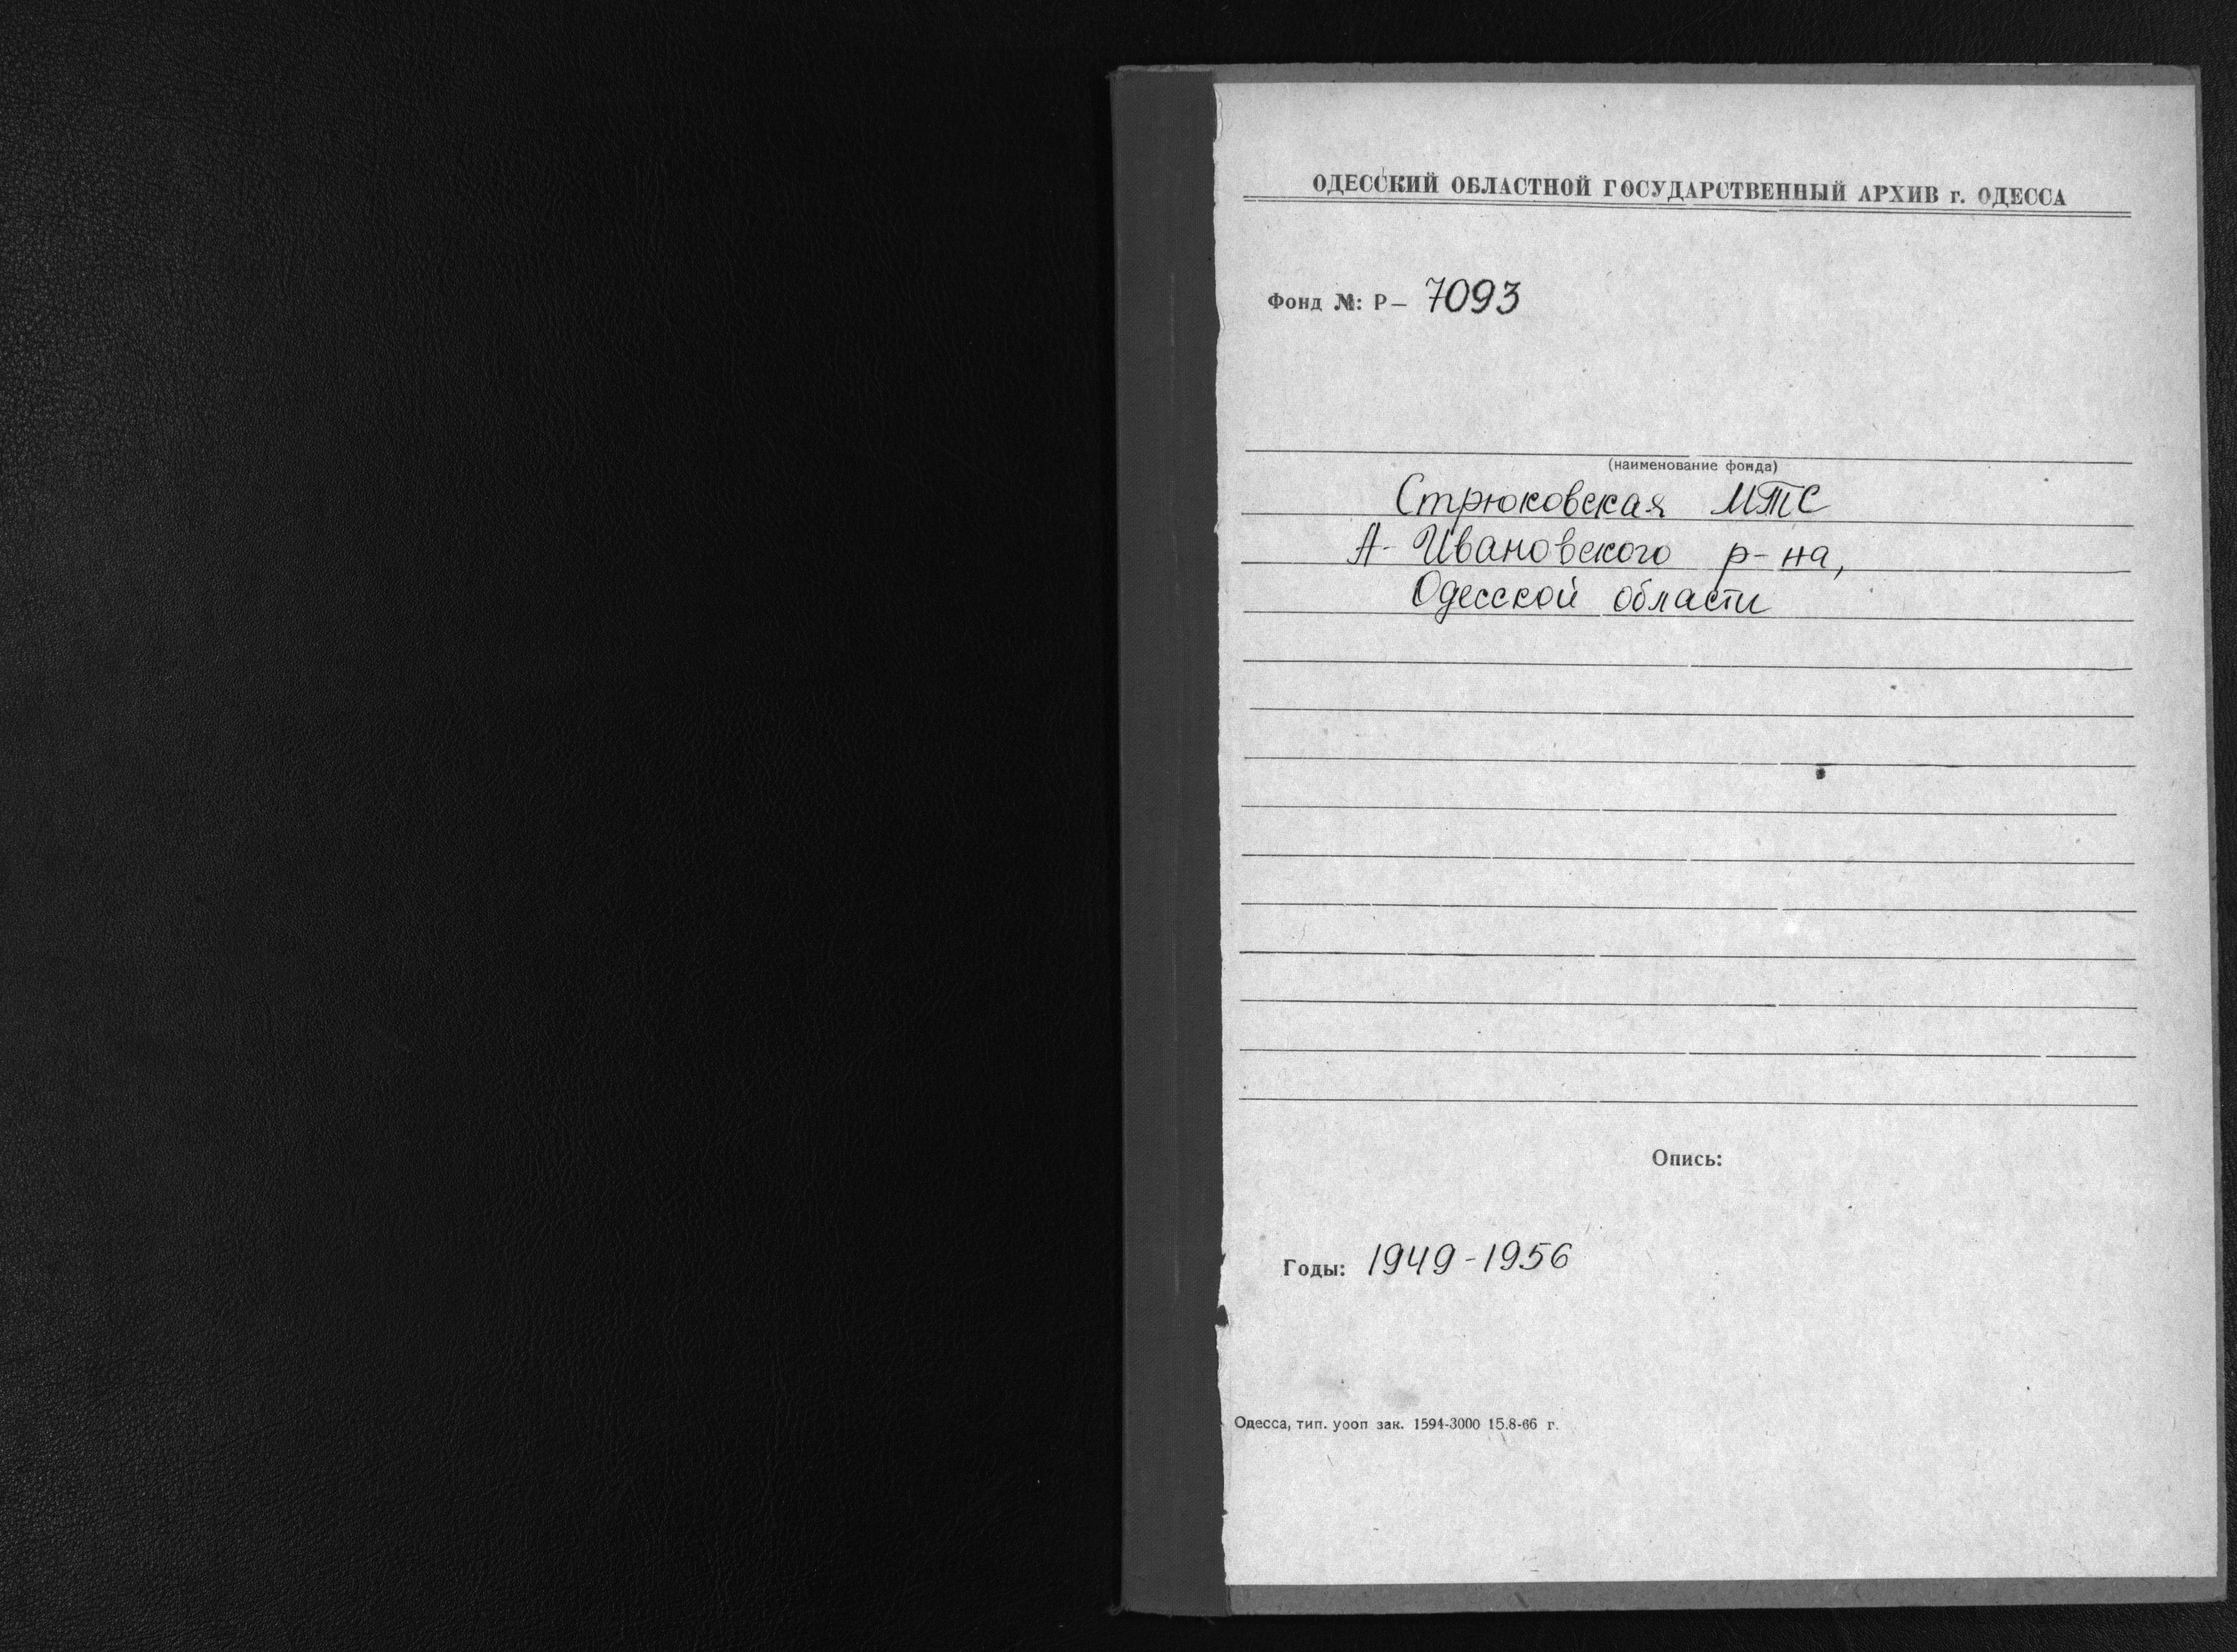 ОДЕССКИЙ ОБЛАСТНОЙ ГОСУДАРСТВЕННЫЙ АРХИВ г. ОДЕССА
Фонд №: Р— 7093
(наименование фонда)
Стрюковская МТС
А- Ивановского р-на,
Одесской области
Опись:
Годы: 1949-1956
Одесса, тип. уооп зак. 1594-3000 15.8-66 г.